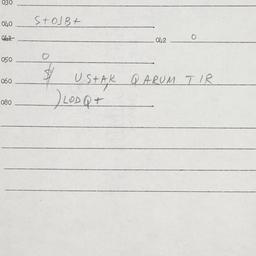 030
040 S+OJB+
042 042 0
050 0
060 $ US+AK QARUM TIR
080 )LODQ+